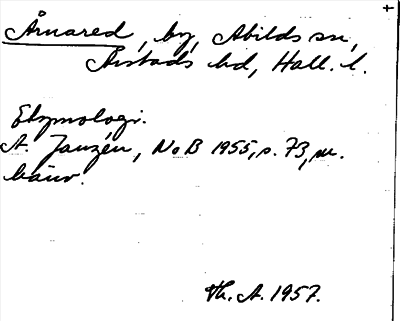 Årnared, by, Abilds sn,
Årstads hd, Hall. l.
Etymologi.
A. Janzén, NoB 1955, s. 73, m.
hänv.
Th. A. 1957.